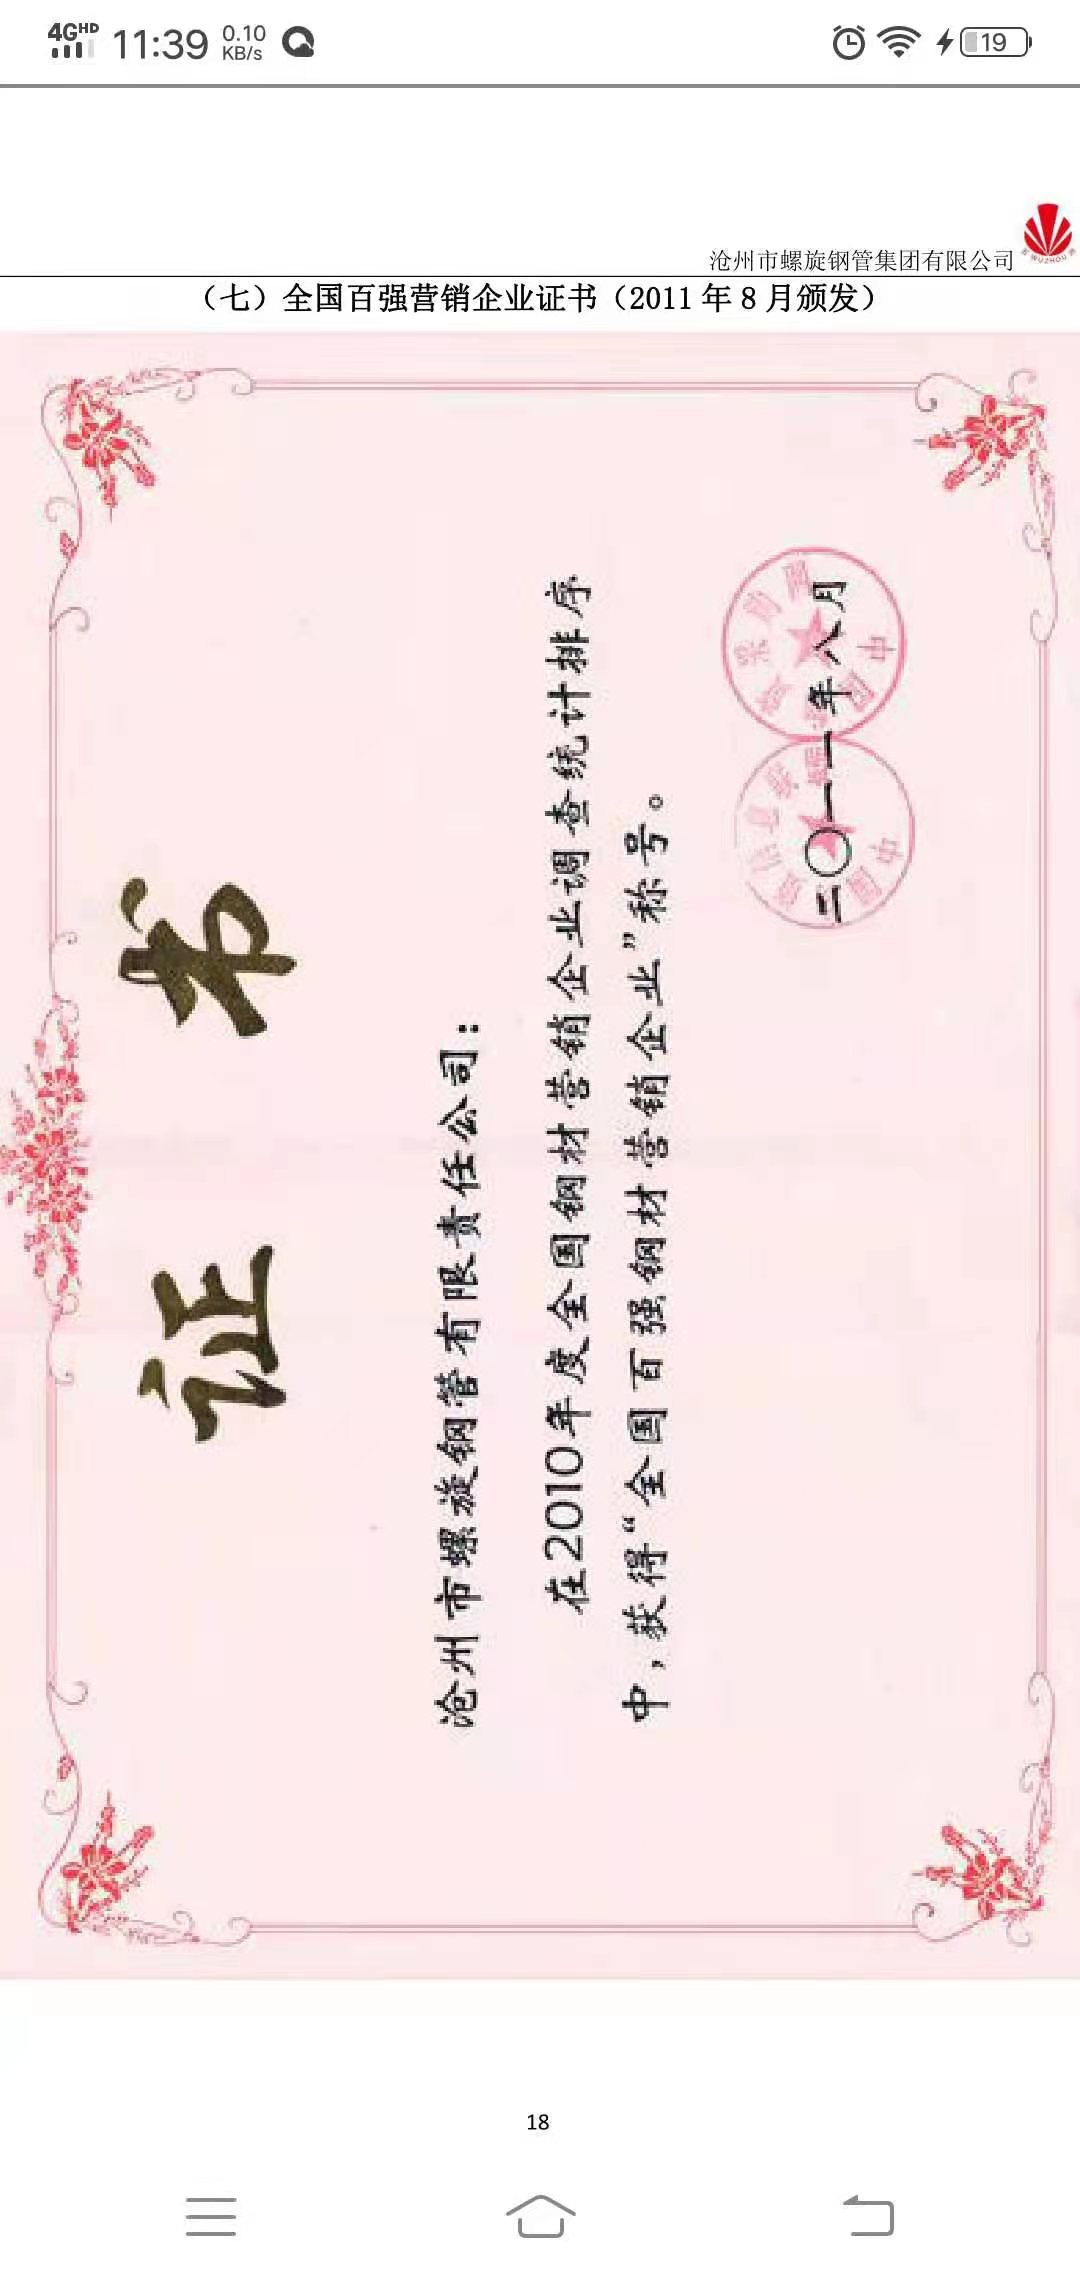 4G HD 11:39 0.10 KB/s 19
沧州市螺旋钢管集团有限公司
WUZHOU
（七）全国百强营销企业证书（2011 年 8 月颁发）
证 书
沧州市螺旋钢管有限责任公司：
在2010年度全国钢材营销企业调查统计排序
中，获得“全国百强钢材营销企业”称号。
二〇一一年八月
18